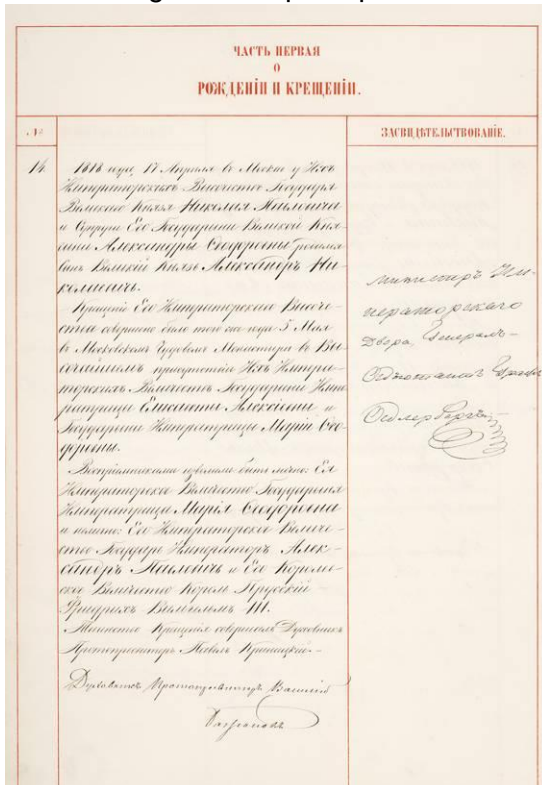 ЧАСТЬ ПЕРВАЯ
О
РОЖДЕНІИ И КРЕЩЕНІИ.
№
ЗАСВИДѢТЕЛЬСТВОВАНІЕ.
14
1818 года 17 Апрѣля въ Москвѣ у Ихъ
Императорскихъ Высочествъ Государя
Великаго Князя Николая Павловича
и Супруги Его Государыни Великой Кня-
гини Александры Ѳеодоровны родился
сынъ Великій Князь Александръ Ни-
колаевичъ.
Крещеніе Его Императорскаго Высоче-
ства совершено было того же года 5 Мая
въ Московскомъ Чудовомъ Монастырѣ въ Вы-
сочайшемъ присутствіи Ихъ Импера-
торскихъ Величествъ Государыни Импе-
ратрицы Елисаветы Алексѣевны и
Государыни Императрицы Маріи Ѳео-
доровны.
Воспріемниками изволили быть лично: Ея
Императорское Величество Государыня
Императрица Марія Ѳеодоровна
и заочно: Его Императорское Величе-
ство Государь Императоръ Алек-
сандръ Павловичъ и Его Королев-
ское Величество Король Прусскій
Фридрихъ Вильгельмъ III.
Таинство Крещенія совершалъ Духовникъ
Протопресвитеръ Павелъ Криницкій.
Духовникъ Протопресвитеръ Василій
Бажановъ
Министръ Им-
ператорскаго
Двора, Генералъ-
Адъютантъ Графъ
Адлербергъ